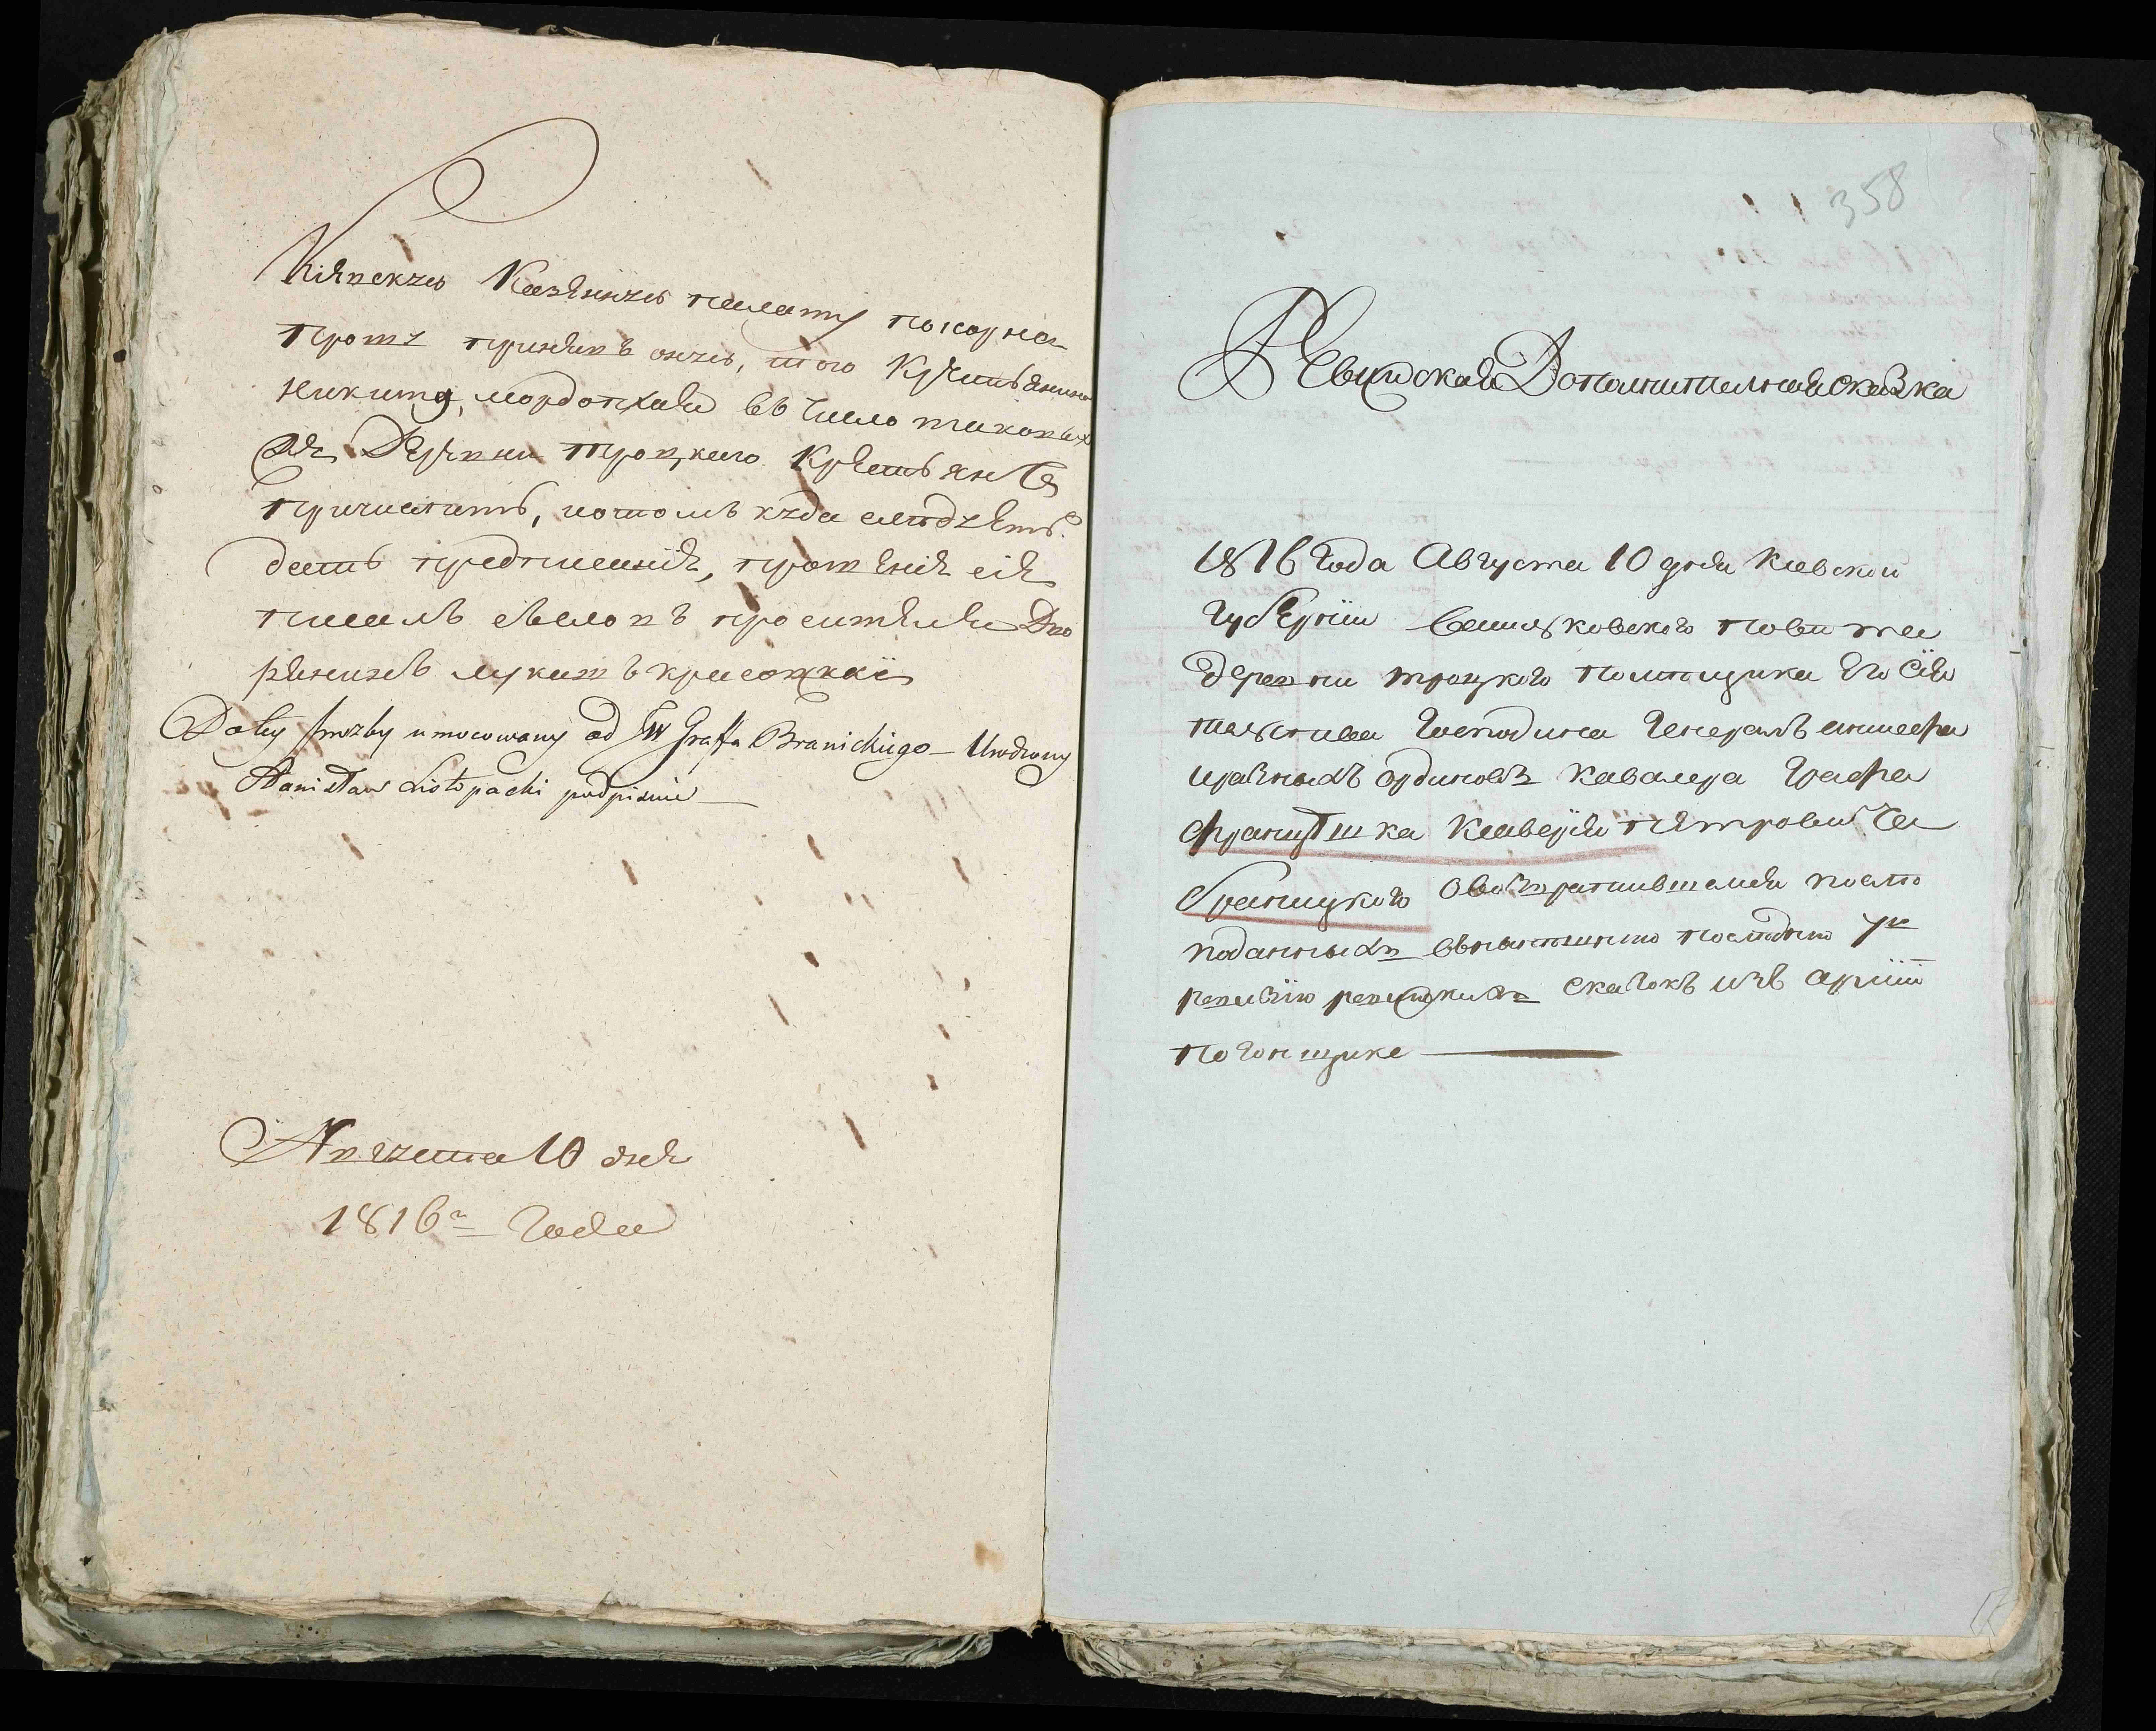 Кіевскую Казенную палату покорна
прошу принявъ оную, того Крестьянина
Никиту, мордопхая въ число таковыхъ
Деревни Троцкаго Крестьянъ
причислить, и о томъ куда слѣдуетъ
дать предписанія, прошенія сія
писалъ слово въ просителя Дво
рянинъ лукашъ
Do tey proźby umocowany od JW Graffa Branickiego Urodzony
Stanisław Listopacki podpisuie
Августа 10 дня
1816го Года
358
Ревижская Допалнителная сказка
1816 Года Августа 10 дня Киевской
Губернїи Василковского Повита
деревни троцкого Помѣщика Его Сїя
тилства Господина Генералъ аншефа
и разныхъ ординовъ Кавалера Графа
францѣшка Ксаверия петровича
браницкого О возвратившемся послѣ
поданныхъ послѣднюю 7ю
ревизїю ревижкихъ Сказокъ изъ армїи
погонщике